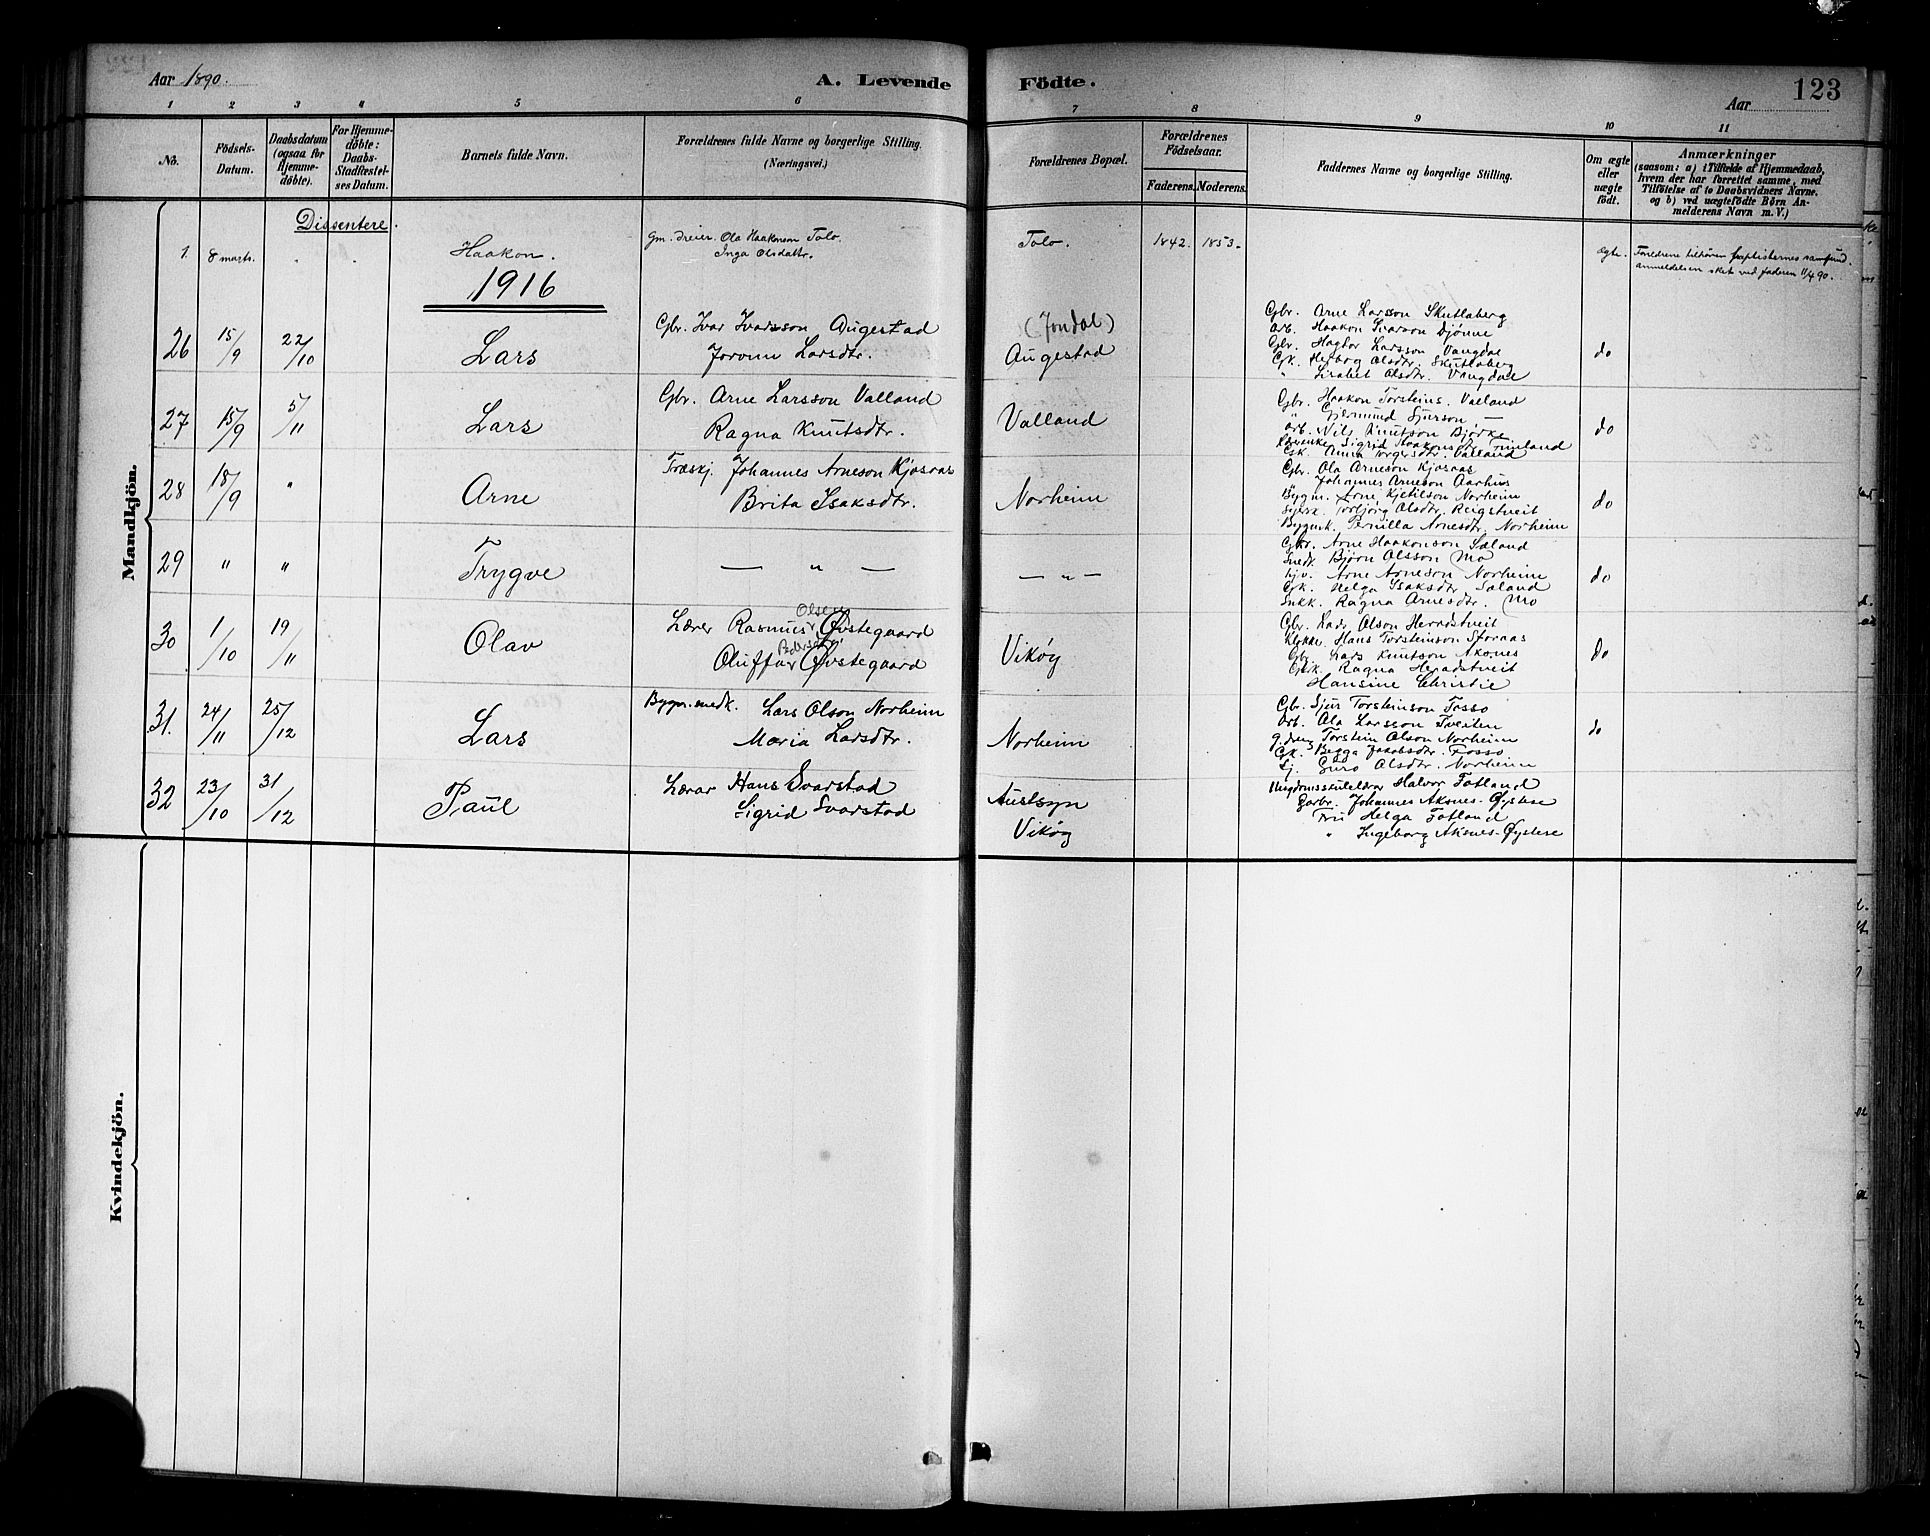 Aar 1890.
A. Levende Födte.
Aar
123
1 2 3 4 5 6 7 8 9 10 11
No.
Födsels-Datum.
Daabsdatum (ogsaa for Hjemme-döbte).
For Hjemme-döbte: Daabs-Stadfæstel-ses Datum.
Barnets fulde Navn.
Forældrenes fulde Navne og borgerlige Stilling.
(Næringsvei.)
Forældrenes Bopæl.
Forældrenes Födselsaar.
Faderens. Moderens.
Faddernes Navne og borgerlige Stilling.
Om ægte eller uægte födt.
Anmærkninger
(saasom: a) i Tilfælde af Hjemmedaab, hvem der har forrettet samme, med Tilföielse af to Daabsvidners Navne. og b) ved uægtefödte Börn An-melderens Navn m. V.)
Mandkjön.
Dissentere.
1. 8 marts. " " Haakon. Gm. dreier. Ola Haakonsen Tolo. Tolo. 1842. 1853. ægte. Forældrene tilhører baptisternes samfund.
Inga Olsdattr. anmeldelsen sket ved faderen 11/4 90.
1916
26 15/9 22/10 Lars
Gbr. Ivar Ivarsson Augestad
Jorunn Larsdtr.
(Jondal)
Augestad
Gbr. Arne Larsson Skutlaberg
Arb. Haakon Ivarson Djønne
Gbr. Hagtor Larsson Vangdal
Gk. Herborg Olsdtr. Skutlaberg
" Lisabet Olsdtr. Vangdal
do
27 15/9 5/11 Lars
Gbr. Arne Larsson Valland
Ragna Knutsdtr.
Valland
Gbr. Haakon Torsteins. Valland
" Gjermund Sjurson —
Arb. Nils Knutson Bjørke
Sigrid Haakonsdtr.
Gk. Anna Torgersdtr. Valland
do
28 18/9 " Arne
Træskj. Johannes Arneson Kjosaas
Brita Isaksdtr.
Norheim
Gbr. Ola Arneson Kjosaas
Johannes Arneson Aarhus
Bygm. Arne Kjetilson Norheim
Torbjørg Olsdtr. Reigstveit
Bygmk. Pernilla Arnesdtr. Norheim
do
29 " " Trygve
— " —
— " —
Gbr. Arne Haakonson Sæland
Snedk. Bjørn Olsson Mo
Arne Arneson Norheim
Gk. Helga Isaksdtr Sæland
Snkk. Ragna Arnesdtr. Mo
do
30 1/10 19/11 Olav
Lærer Rasmus Olsen Øvstegaard
Oluffa Øvstegaard
Vikøy
Gbr. Lads Olson Heradstveit
Klokkr. Hans Torsteinson Storaas
Gbr. Lars Knutson Aksnes
Ragna Heradstveit
Hansine Christie
do
31. 24/11 25/12 Lars
Bygn.snedk. Lars Olson Norheim
Maria Larsdtr.
Norheim
Gbr. Sjur Torsteinson Fosso
Arb. Ola Larsson Tveiten
g.dreng Torstein Olson Norheim
Gk. Begga Jakobsdtr. Fosso
Guro Olsdtr. Norheim
do
32 23/10 31/12 Paul
Lærar Hans Svarstad
Sigrid Svarstad
Austsyn
Vikøy
Ungdomsskuleldrar Halvor Fatland
Garbr. Johannes Aksnes-Øystese
Fru Helga Fatland
" Ingeborg Aksnes-Øystese
Kvindekjön.